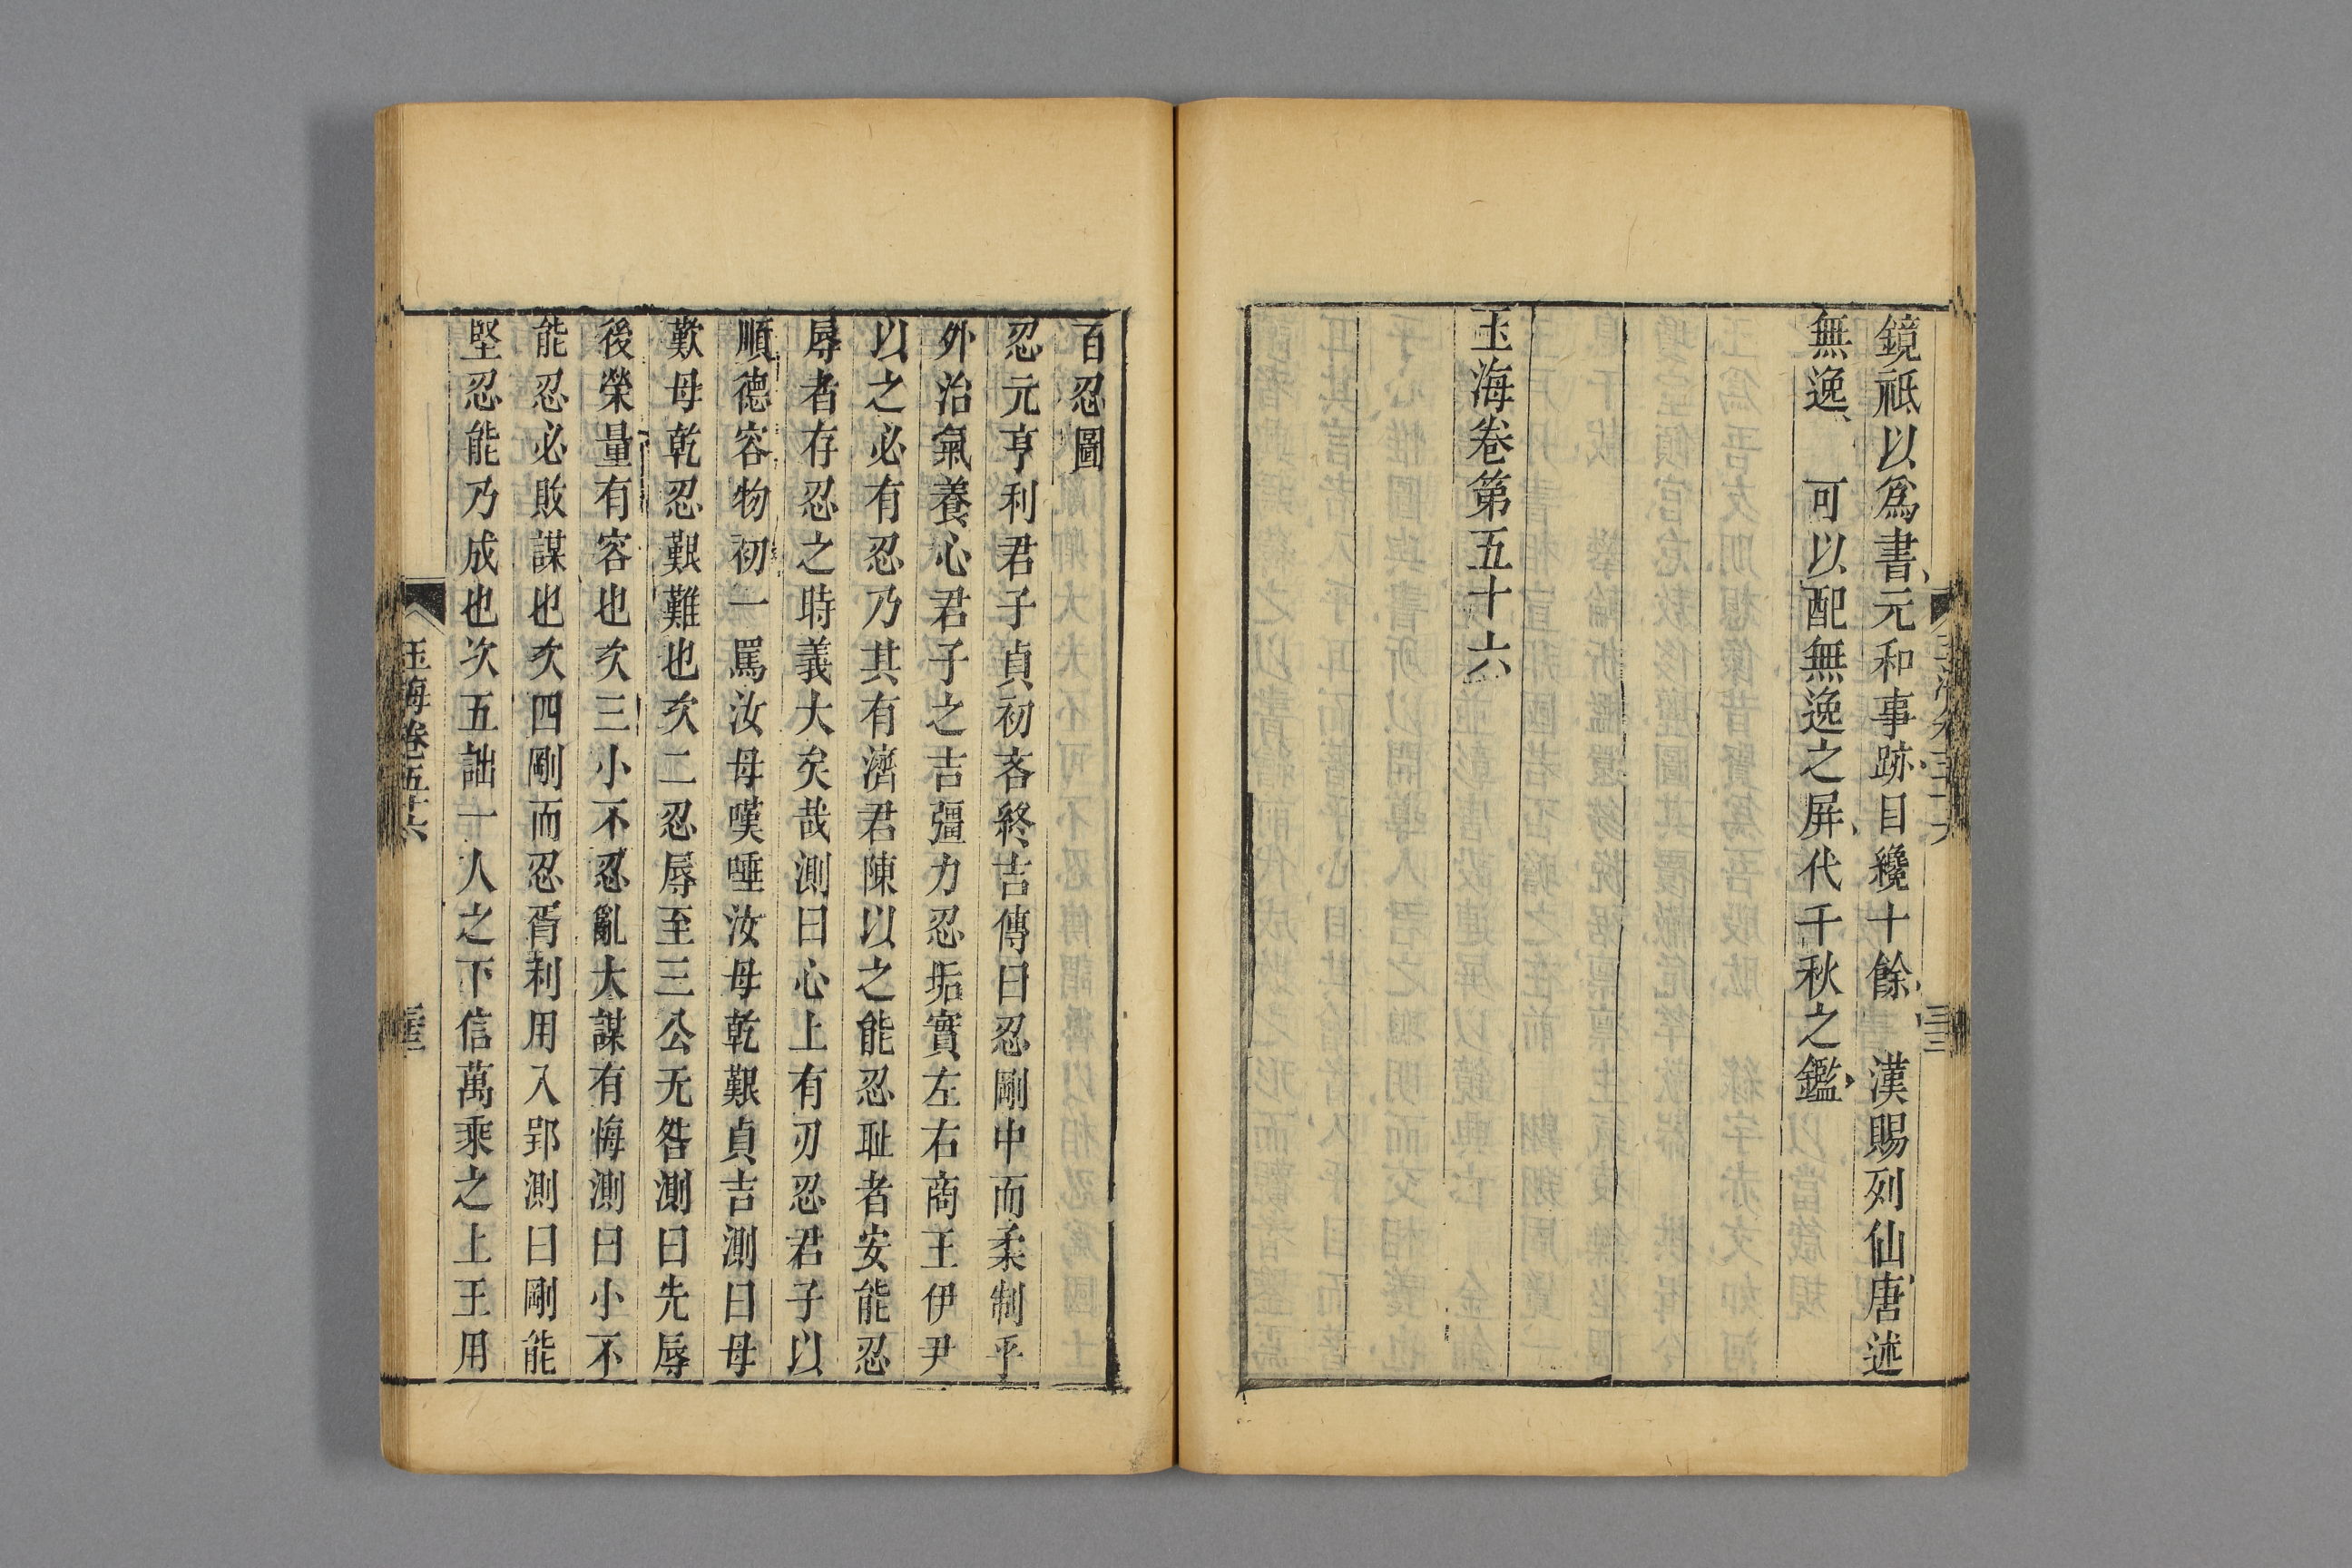 鏡祗以爲書元和事跡目纔十餘 漢賜列仙唐述
無逸 可以配無逸之屏代千秋之鑑
玉海卷第五十六
百忍圖
忍元亨利君子貞初吝終吉傳曰忍剛中而柔制乎
外治氣養心君子之吉彊力忍垢實左右商王伊尹
以之必有忍乃其有濟君陳以之能忍耻者安能忍
辱者存忍之時義大矣哉測曰心上有刃忍君子以
順德容物初一罵汝母嘆唾汝母乾艱貞吉測曰母
歎母乾忍艱難也次二忍辱至三公无咎測曰先辱
後榮量有容也次三小不忍亂大謀有悔測曰小不
能忍必敗謀也次四剛而忍胥利用入郢測曰剛能
堅忍能乃成也次五詘一人之下信萬乘之上王用
玉海卷五十六